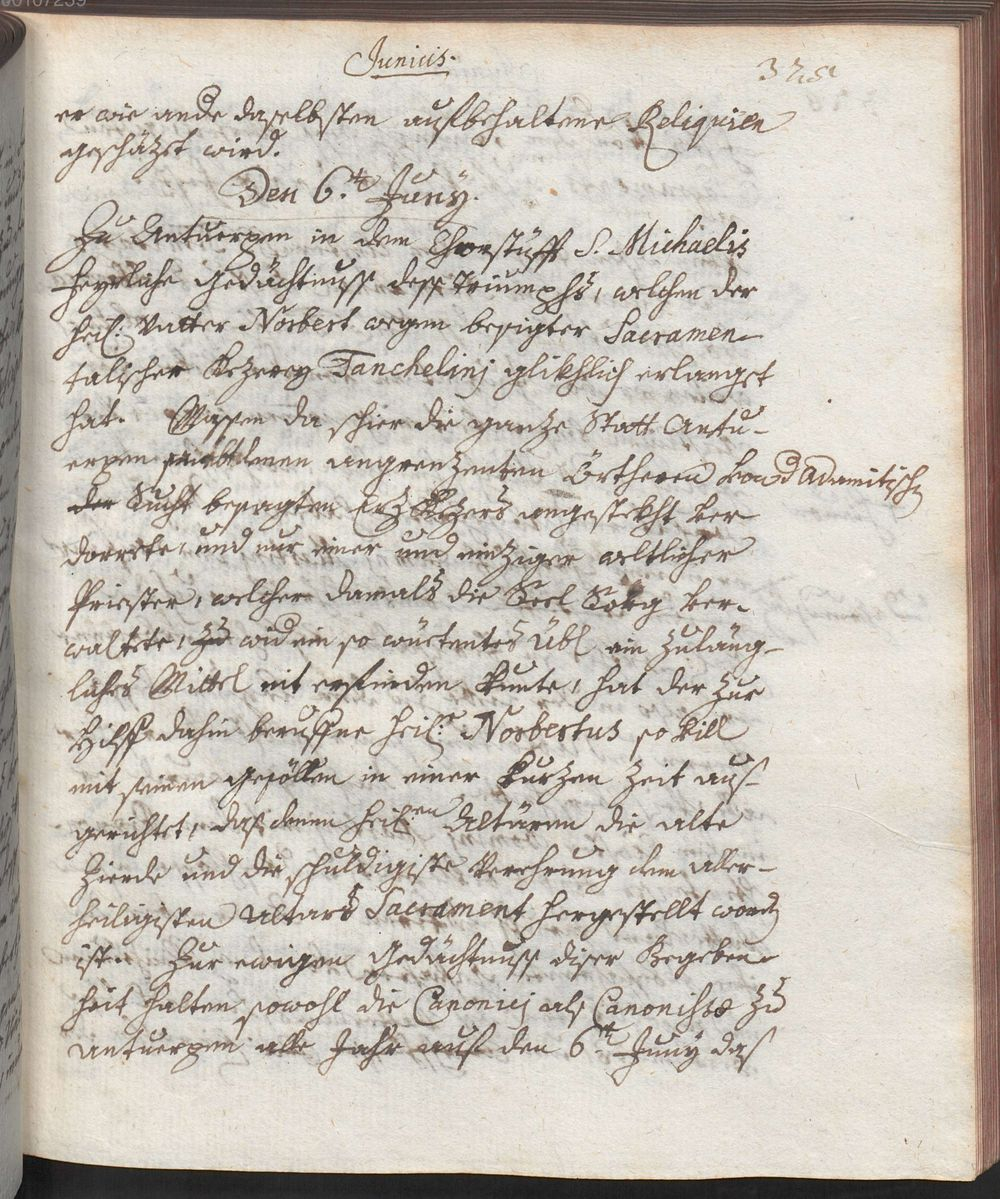 Junius.
er wie ande daselbsten aufbehaltene Reliquien
geschäzet wird.
Den 6.ten Juny.
Zu Antuerpen in dem Chorstüfft S. Michaelis
feyrliche gedächtnuss dess Triumphs, welchen der
heil: Vatter Norbert wegen besigter Sacramen-
talischer kezerey Tanchelinj glikhlich erlanget
hat. Massen da schier die ganze Statt Antu-
erpen sambt denen angrenzenten Örtheren von d Adamitisch
der Sucht besagten Erz Kezers angestekht ver-
dorrete, und nur einer und einziger weltlicher
Priester, welcher damals die Seel Sorg ver-
waltete, wid ein so wüetentes übl ein zuläng-
liches Mittel nit erfinden kunte, hat der zur
Hilff dahin beruffne heil.r Norbertus so vill
mit seinen gesöllen in einer kurzen Zeit aus-
gerichtet, dass denen heil.en Altären die alte
Zierde und die schuldigiste Verehrung dem aller-
heiligisten Altars Sacrament hergestellt word
ist. Zur ewigen gedächtnuss diser Begeben-
heit halten sowohl die Canonicj als Canonissæ zu
Antuerpen alle Jahr auf den 6.ten Juny das